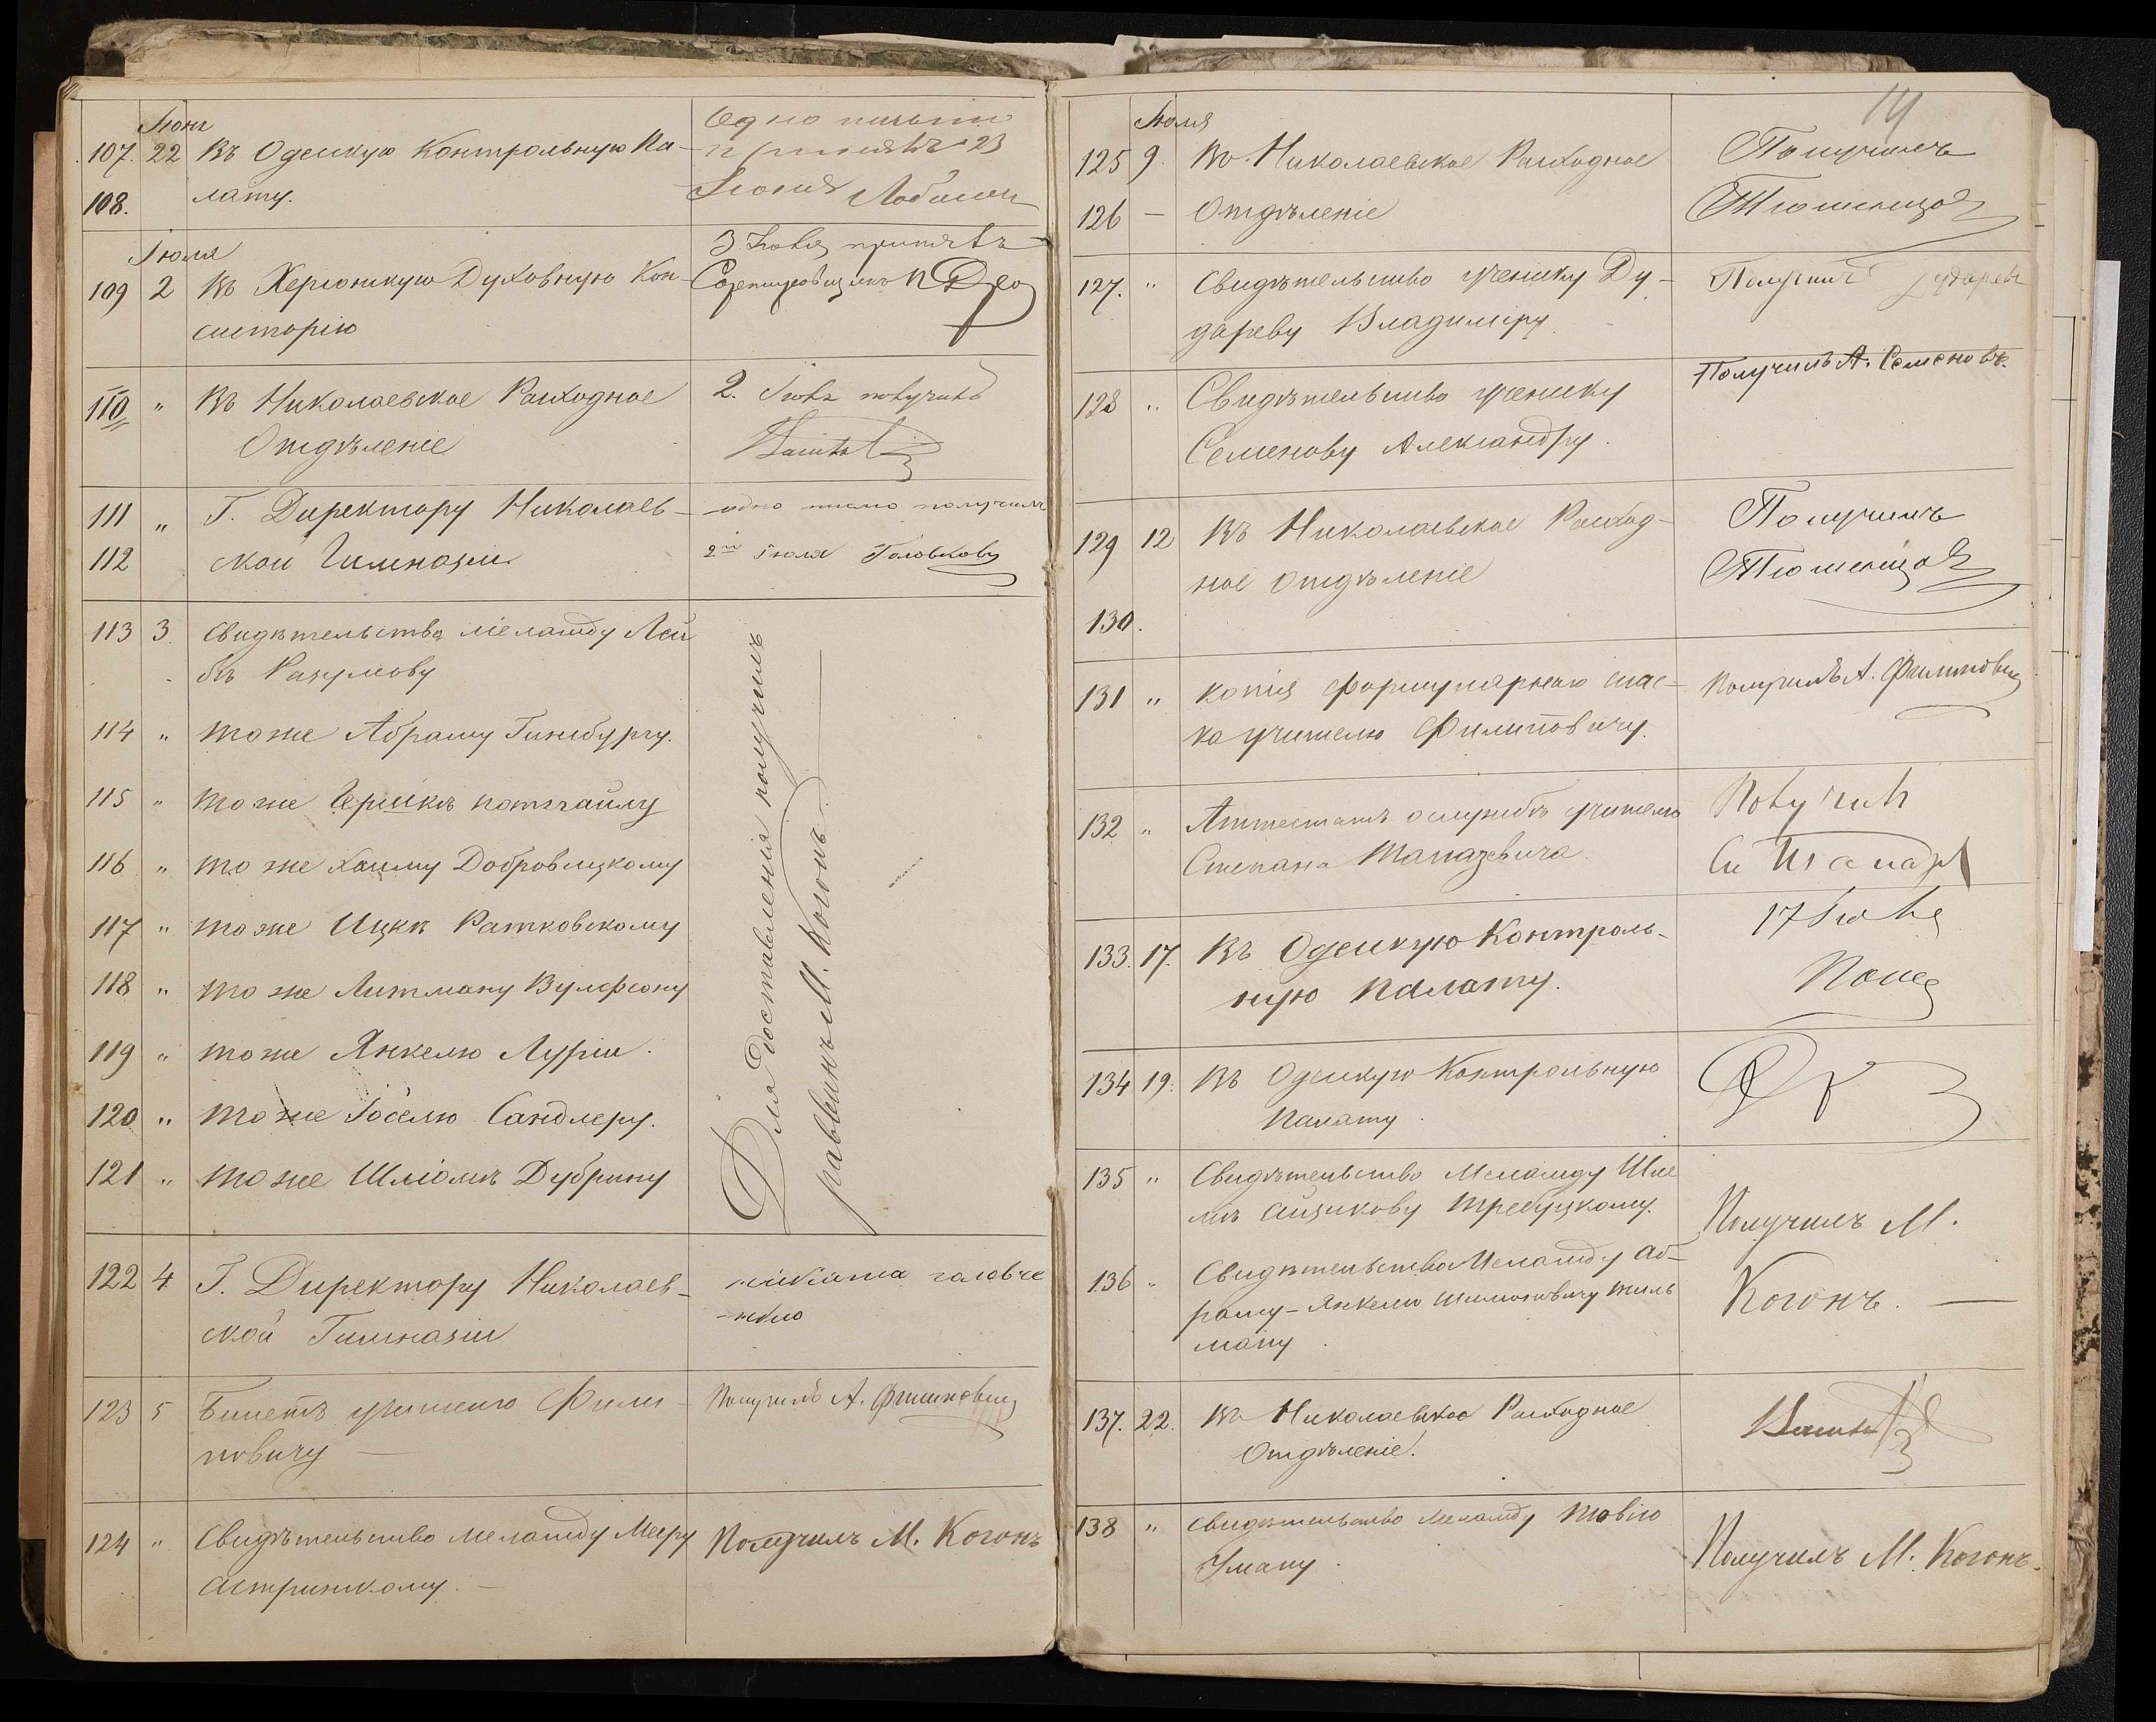 Іюня
107. 22 Въ Одесскую Контрольную Па-
108. лату.
Одно письмо
принялъ 23
Іюня
Іюля
109 2 Въ Херсонскую Духовную Кон-
систорію
3 Іюля принялъ
110 " Въ Николаевское Расходное
Отдѣленіе
2. Іюля получилъ
111 " Г. Директору Николаев-
112 ской Гимназіи.
одно писмо получилъ
2го Іюля Головковъ
113 3. Свидѣтельство меламду Лей
бѣ Разумову
114 " тоже Абраму Гинсбургу.
115 " тоже Гершкѣ Нотгайлу
116 " то же Хаиму Добровицкому
117 " тоже Ицкѣ Ратковскому
118 " то же Литману Вульфсону
119 " тоже Янкелю Луріи.
120 " тоже Іоселю Сандлеру.
121 " тоже Шліомѣ Дубрину
Для доставленія получилъ
раввинъ М. Когонъ.
122 4 Г. Директору Николаев-
ской Гимназіи
никита головче
-нко
123 5 Билетъ учителю Фили-
повичу —
Получилъ А. Филиповичъ
124 " Свидѣтельство меламду Мееру
Астринскому. —
Получилъ М. Когонъ
19
Іюля
125 9. Въ Николаевское Расходное
126 — Отдѣленіе
Получилъ
Тюменцовъ
127. " Свидѣтельство ученику Ду-
дареву Владиміру
Получилъ Дударевъ
128 " Свидѣтельство ученику
Семенову Александру.
Получилъ А. Семеновъ.
129 12 Въ Николаевское Расход-
ное Отдѣленіе
130.
Получилъ
Тюменцовъ
131 " копія формулярнаго спис-
ка учителю Филиповичу.
Получилъ А. Филиповичъ
132 " Аттестатъ о службѣ учителя
Степана
Получилъ
133. 17. Въ Одесскую Контроль-
ную Палату.
17 Іюля
134 19. Въ Одесскую Контрольную
Палату.
135 " Свидѣтельство Меламду Шле
мѣ Айзикову Требуцкому.
136 " Свидѣтельство Меламду Аб-
раму-Янкелю Шимоновичу Тиль
ману.
Получилъ М.
Когонъ. —
137. 22. Въ Николаевское Расходное
Отдѣленіе.
138 " Свидѣтельство меламду Товію
Уману.
Получилъ М. Когонъ.